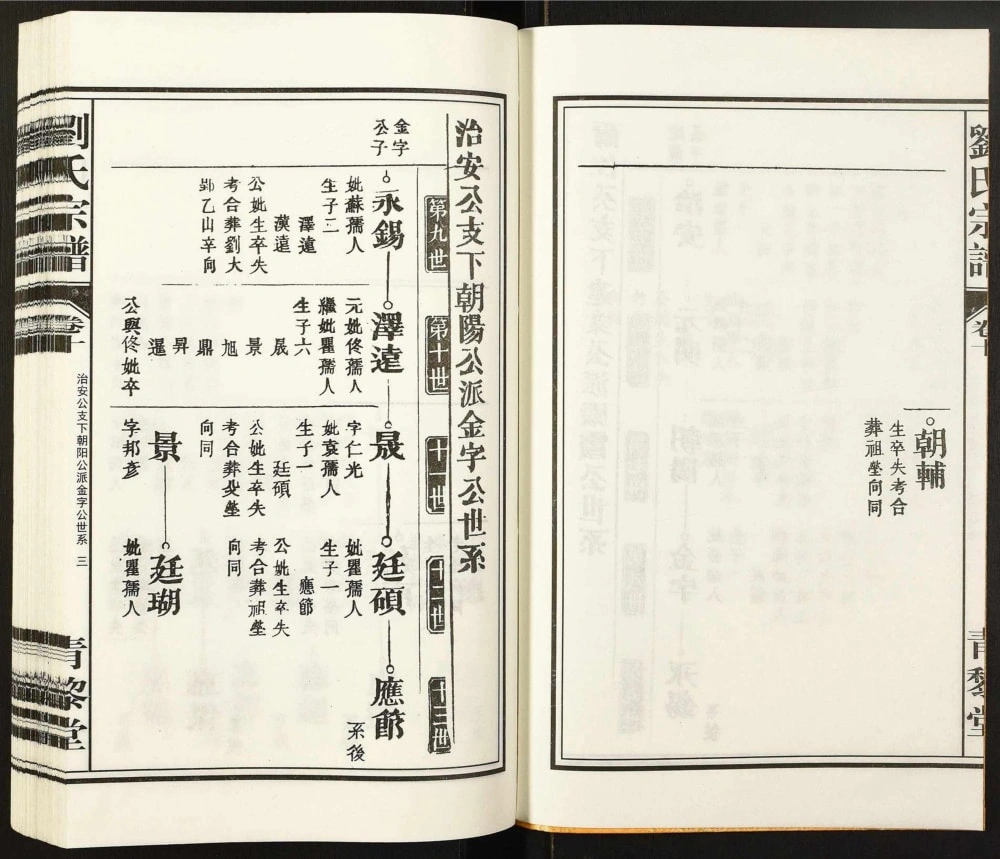 劉氏宗譜
卷十
青黎堂
朝輔
生卒失考合
葬祖塋向同
治安公支下朝陽公派金字公世系
第九世
第十世
十一世
十二世
十三世
金字
公子
永錫
妣蘇孺人
生子二
澤遠
漢遠
公妣生卒失
考合葬劉大
郢乙山辛向
澤遠
元妣佟孺人
繼妣瞿孺人
生子六
晟
景
旭
鼎
昇
暹
公與佟妣卒
晟
字仁光
妣袁孺人
生子一
廷碩
公妣生卒失
考合葬癹塋
向同
廷碩
妣瞿孺人
生子一
應節
公妣生卒失
考合葬祖塋
向同
應節
系後
景
字邦彥
廷瑚
妣瞿孺人
劉氏宗譜
卷十
治安公支下朝阳公派金字公世系 三
青黎堂